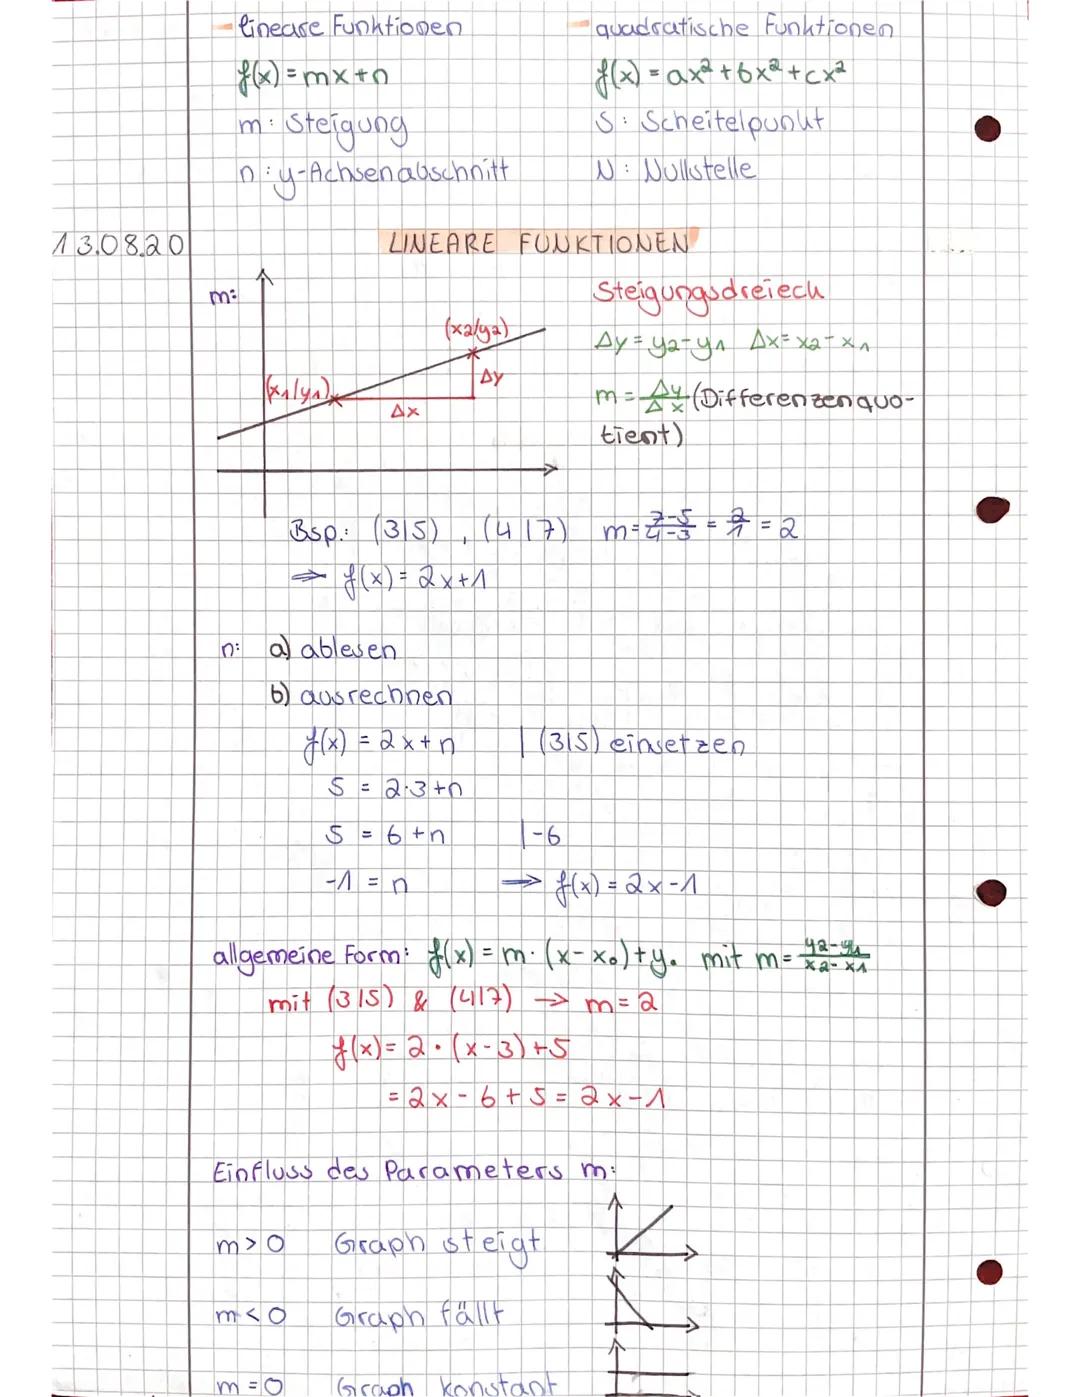 - lineare Funktionen
f(x) = mx + n
m: Steigung
n: y-Achsenabschnitt
- quadratische Funktionen
f(x) = ax² + bx² + cx²
S: Scheitelpunkt
N: Nullstelle
13.08.20
LINEARE FUNKTIONEN
m:
(x2/y2)
(x1/y1)
Δy
Δx
Steigungsdreieck
Δy = y2 - y1 Δx = x2 - x1
m = Δy/Δx (Differenzenquo-
tient)
Bsp.: (3|5), (4|7) m = 7-5/4-3 = 2/1 = 2
⇒ f(x) = 2x+1
n: a) ablesen
b) ausrechnen
f(x) = 2x+n | (3|5) einsetzen
5 = 2·3+n
5 = 6+n |-6
-1 = n ⇒ f(x) = 2x-1
allgemeine Form: f(x) = m·(x-x₀)+y₀ mit m = y2-y1/x2-x1
mit (3|5) & (4|7) → m = 2
f(x) = 2·(x-3)+5
= 2x - 6 + 5 = 2x-1
Einfluss des Parameters m:
m > 0 Graph steigt
m < 0 Graph fällt
m = 0 Graph konstant